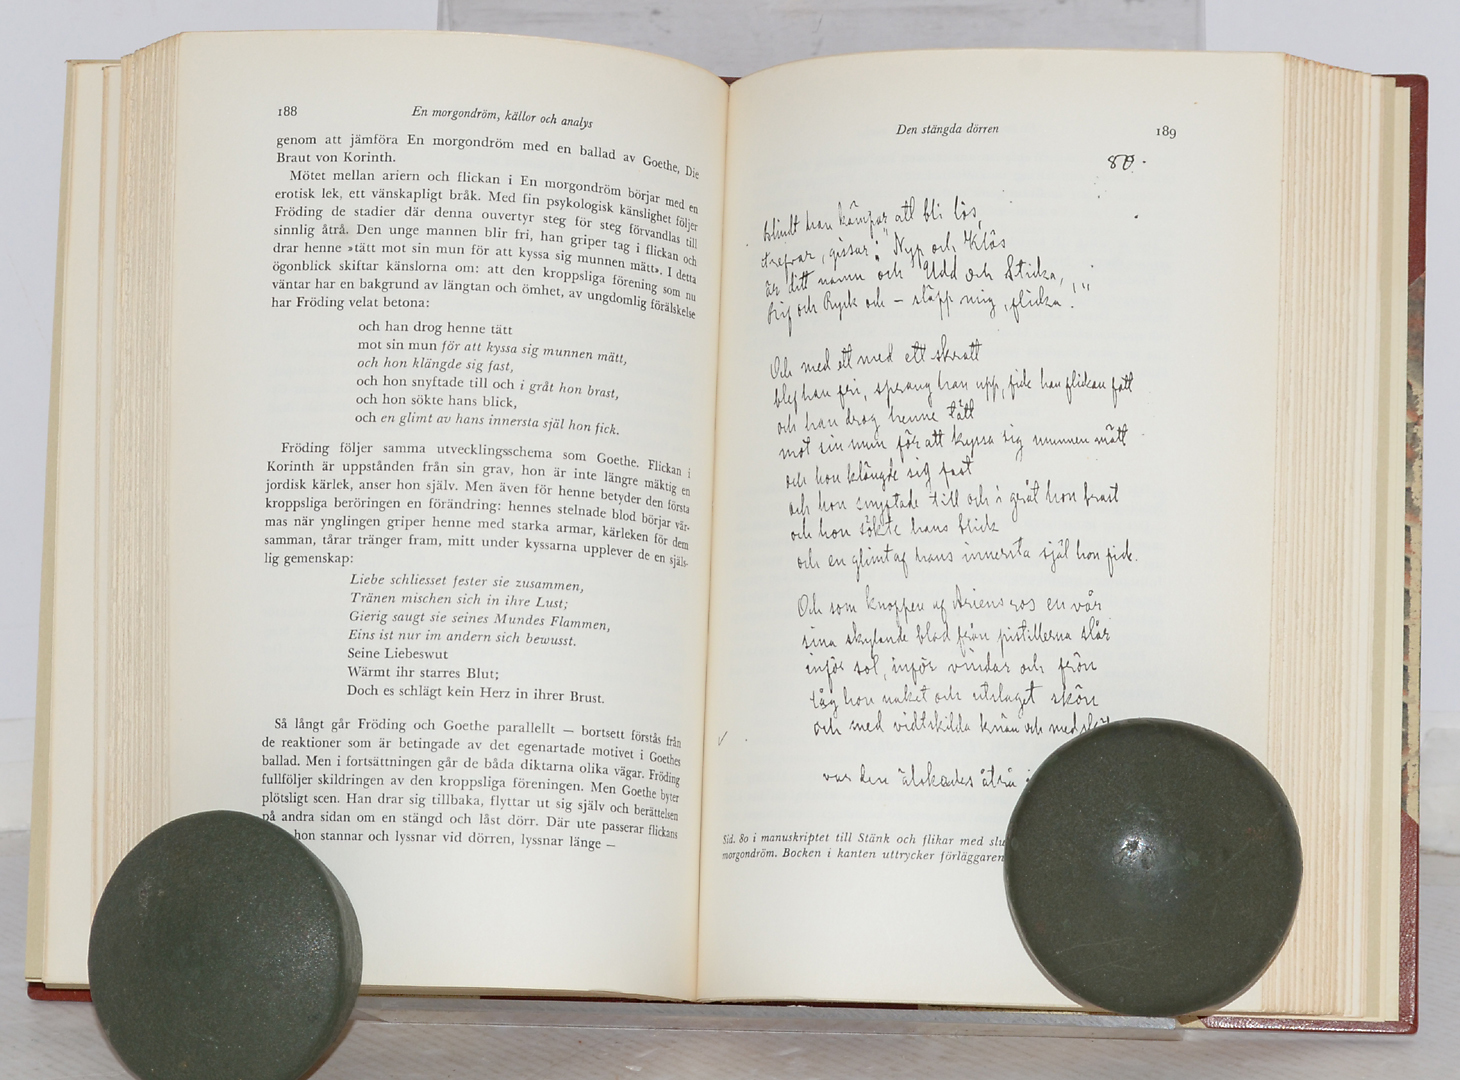 188
En morgondröm, källor och analys
genom att jämföra En morgondröm med en ballad av Goethe, Die
Braut von Korinth.
Mötet mellan ariern och flickan i En morgondröm börjar med en
erotisk lek, ett vänskapligt bråk. Med fin psykologisk känslighet följer
Fröding de stadier där denna ouvertyr steg för steg förvandlas till
sinnlig åtrå. Den unge mannen blir fri, han griper tag i flickan och
drar henne »tätt mot sin mun för att kyssa sig munnen mätt». I detta
ögonblick skiftar känslorna om: att den kroppsliga förening som nu
väntar har en bakgrund av längtan och ömhet, av ungdomlig förälskelse
har Fröding velat betona:
och han drog henne tätt
mot sin mun för att kyssa sig munnen mätt,
och hon klängde sig fast,
och hon snyftade till och i gråt hon brast,
och hon sökte hans blick,
och en glimt av hans innersta själ hon fick.
Fröding följer samma utvecklingsschema som Goethe. Flickan i
Korinth är uppstånden från sin grav, hon är inte längre mäktig en
jordisk kärlek, anser hon själv. Men även för henne betyder den första
kroppsliga beröringen en förändring: hennes stelnade blod börjar vär-
mas när ynglingen griper henne med starka armar, kärleken för dem
samman, tårar tränger fram, mitt under kyssarna upplever de en själs-
lig gemenskap:
Liebe schliesset fester sie zusammen,
Tränen mischen sich in ihre Lust;
Gierig saugt sie seines Mundes Flammen,
Eins ist nur im andern sich bewusst.
Seine Liebeswut
Wärmt ihr starres Blut;
Doch es schlägt kein Herz in ihrer Brust.
Så långt går Fröding och Goethe parallellt — bortsett förstås från
de reaktioner som är betingade av det egenartade motivet i Goethes
ballad. Men i fortsättningen går de båda diktarna olika vägar. Fröding
fullföljer skildringen av den kroppsliga föreningen. Men Goethe byter
plötsligt scen. Han drar sig tillbaka, flyttar ut sig själv och berättelsen
på andra sidan om en stängd och låst dörr. Där ute passerar flickans
hon stannar och lyssnar vid dörren, lyssnar länge —
Den stängda dörren
189
80.
blindt han kämpar att bli lös,
trefvar, gissar: "Nyp och Klös
är ditt namn och Udd och Sticka,
Rif och Ryck och – släpp mig, flicka!"
Och med ett med ett skratt
blef han fri, sprang han upp, fick han flickan fatt
och han drog henne tätt
mot sin mun för att kyssa sig munnen mätt
och hon klängde sig fast
och hon snyftade till och i gråt hon brast
och hon sökte hans blick
och en glimt af hans innersta själ hon fick.
Och som knoppen af Ariens ros en vår
sina skylande blad från pistillerna slår
inför sol, inför vindar och frön
låg hon naket och utslaget skön
och med vidtskilda knän och med
var den älskades åtrå
Sid. 80 i manuskriptet till Stänk och flikar med
morgondröm. Bocken i kanten uttrycker förläggaren